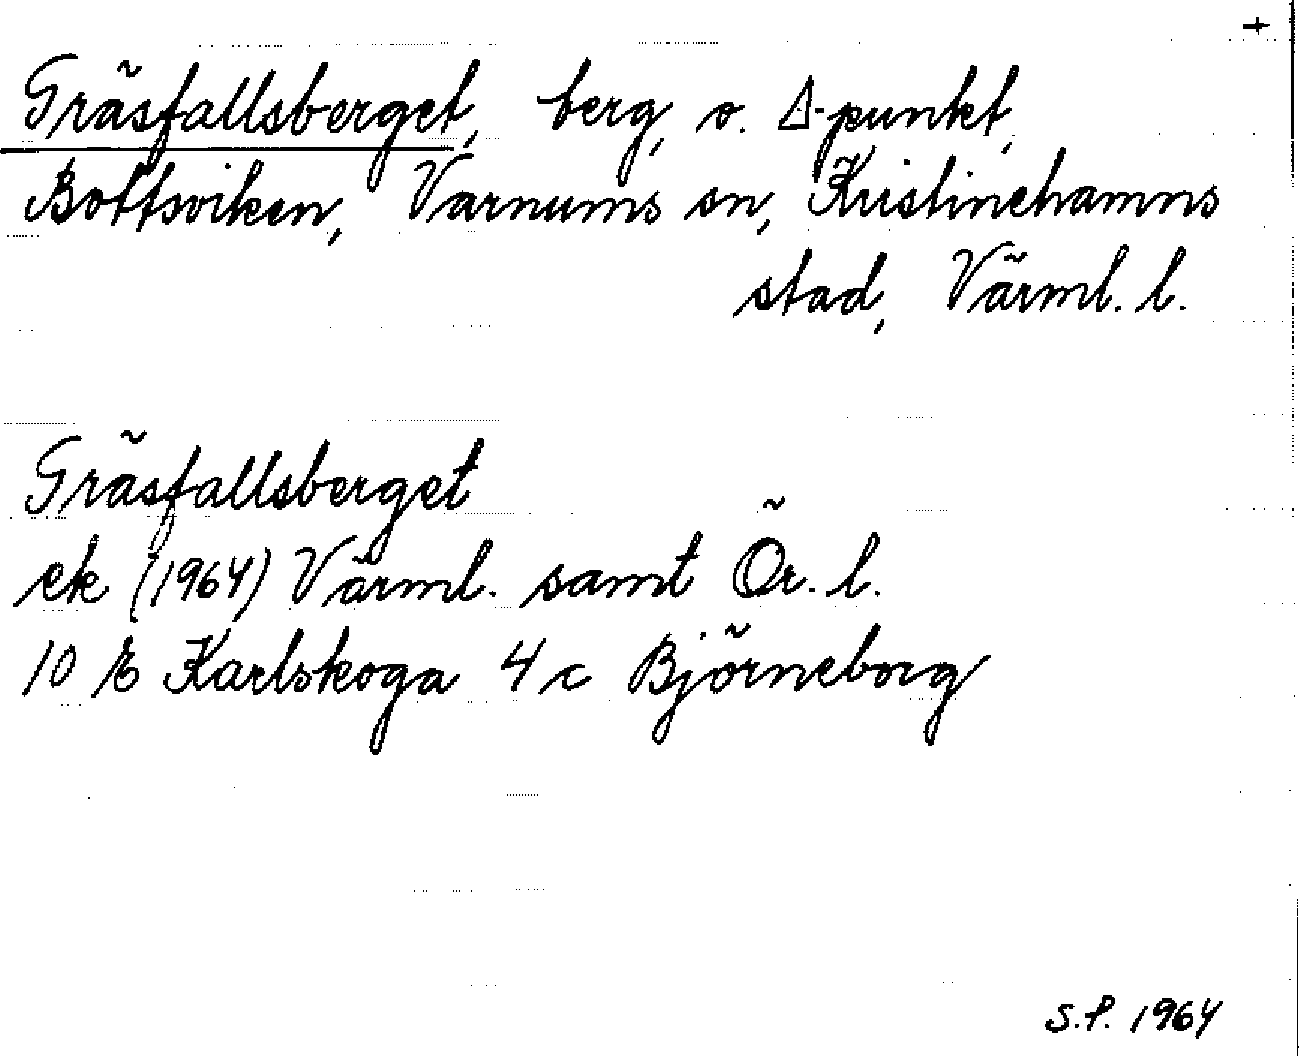 +
Gräsfallsberget, berg, o. Δ-punkt,
Bottsviken, Varnums sn, Kristinehamns
stad, Värml. l.
Gräsfallsberget
ek (1964) Värml. samt Ör. l.
10 E Karlskoga 4 c Björneborg
S.P. 1964